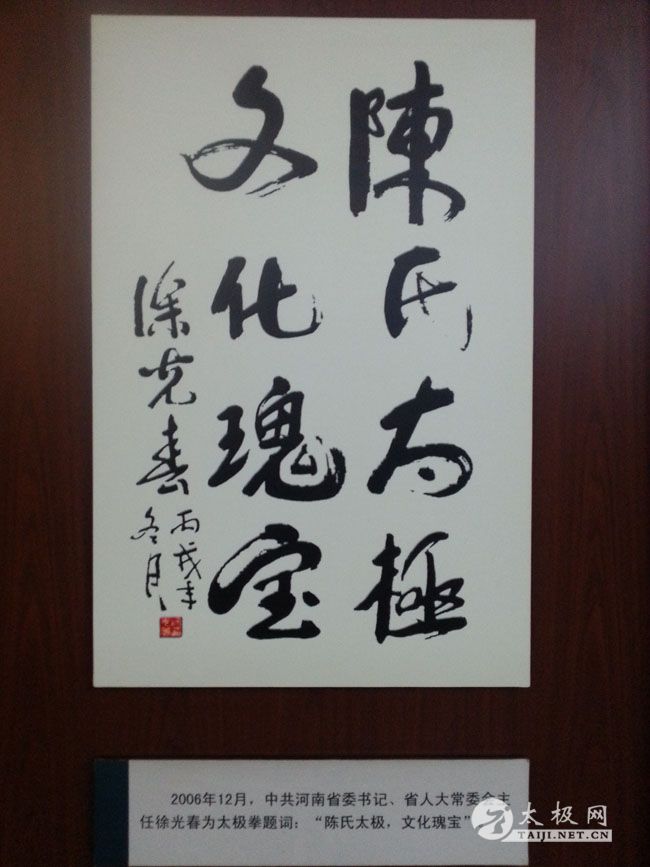 陳氏太極
文化瑰宝
徐光春
丙戌年
冬月
2006年12月，中共河南省委书记、省人大常委会主
任徐光春为太极拳题词：“陈氏太极，文化瑰宝”
太极网
TAIJI.NET.CN